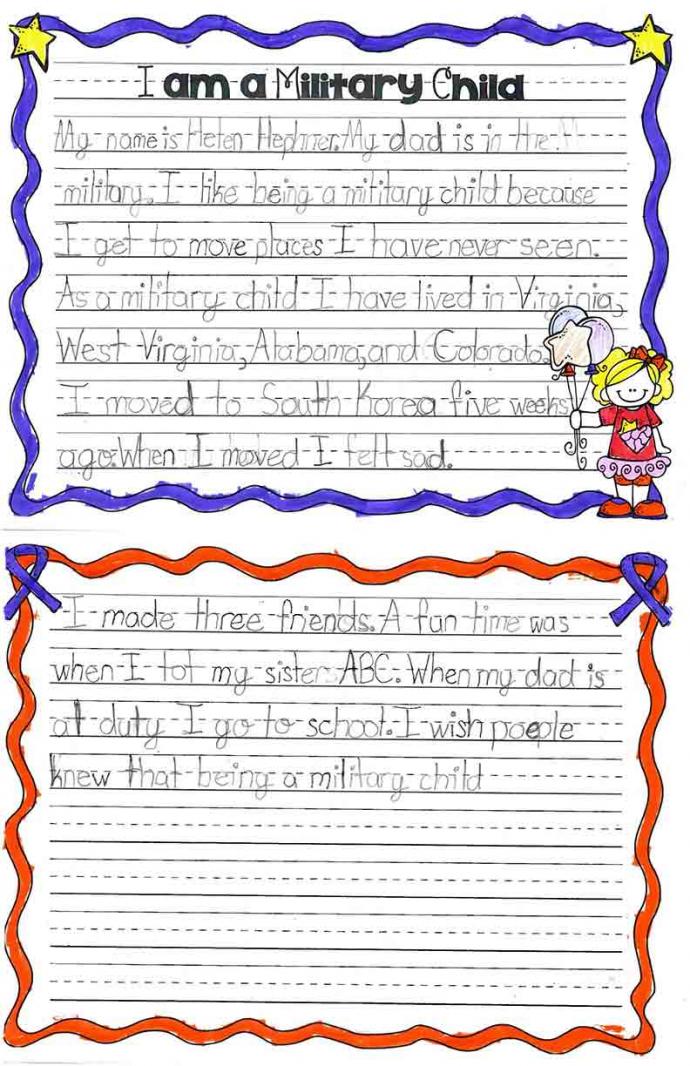 I am a Military Child
My name is Helen Hephner. My dad is in the
military. I like being a military child because
I get to move places I have never seen.
As a military child I have lived in Virginia,
West Virginia, Alabama, and Colorado.
I moved to South Korea five weeks
ago. When I moved I felt sad.
I made three friends. A fun time was
when I tot my sister ABC. When my dad is
at duty I go to school. I wish poeple
knew that being a military child